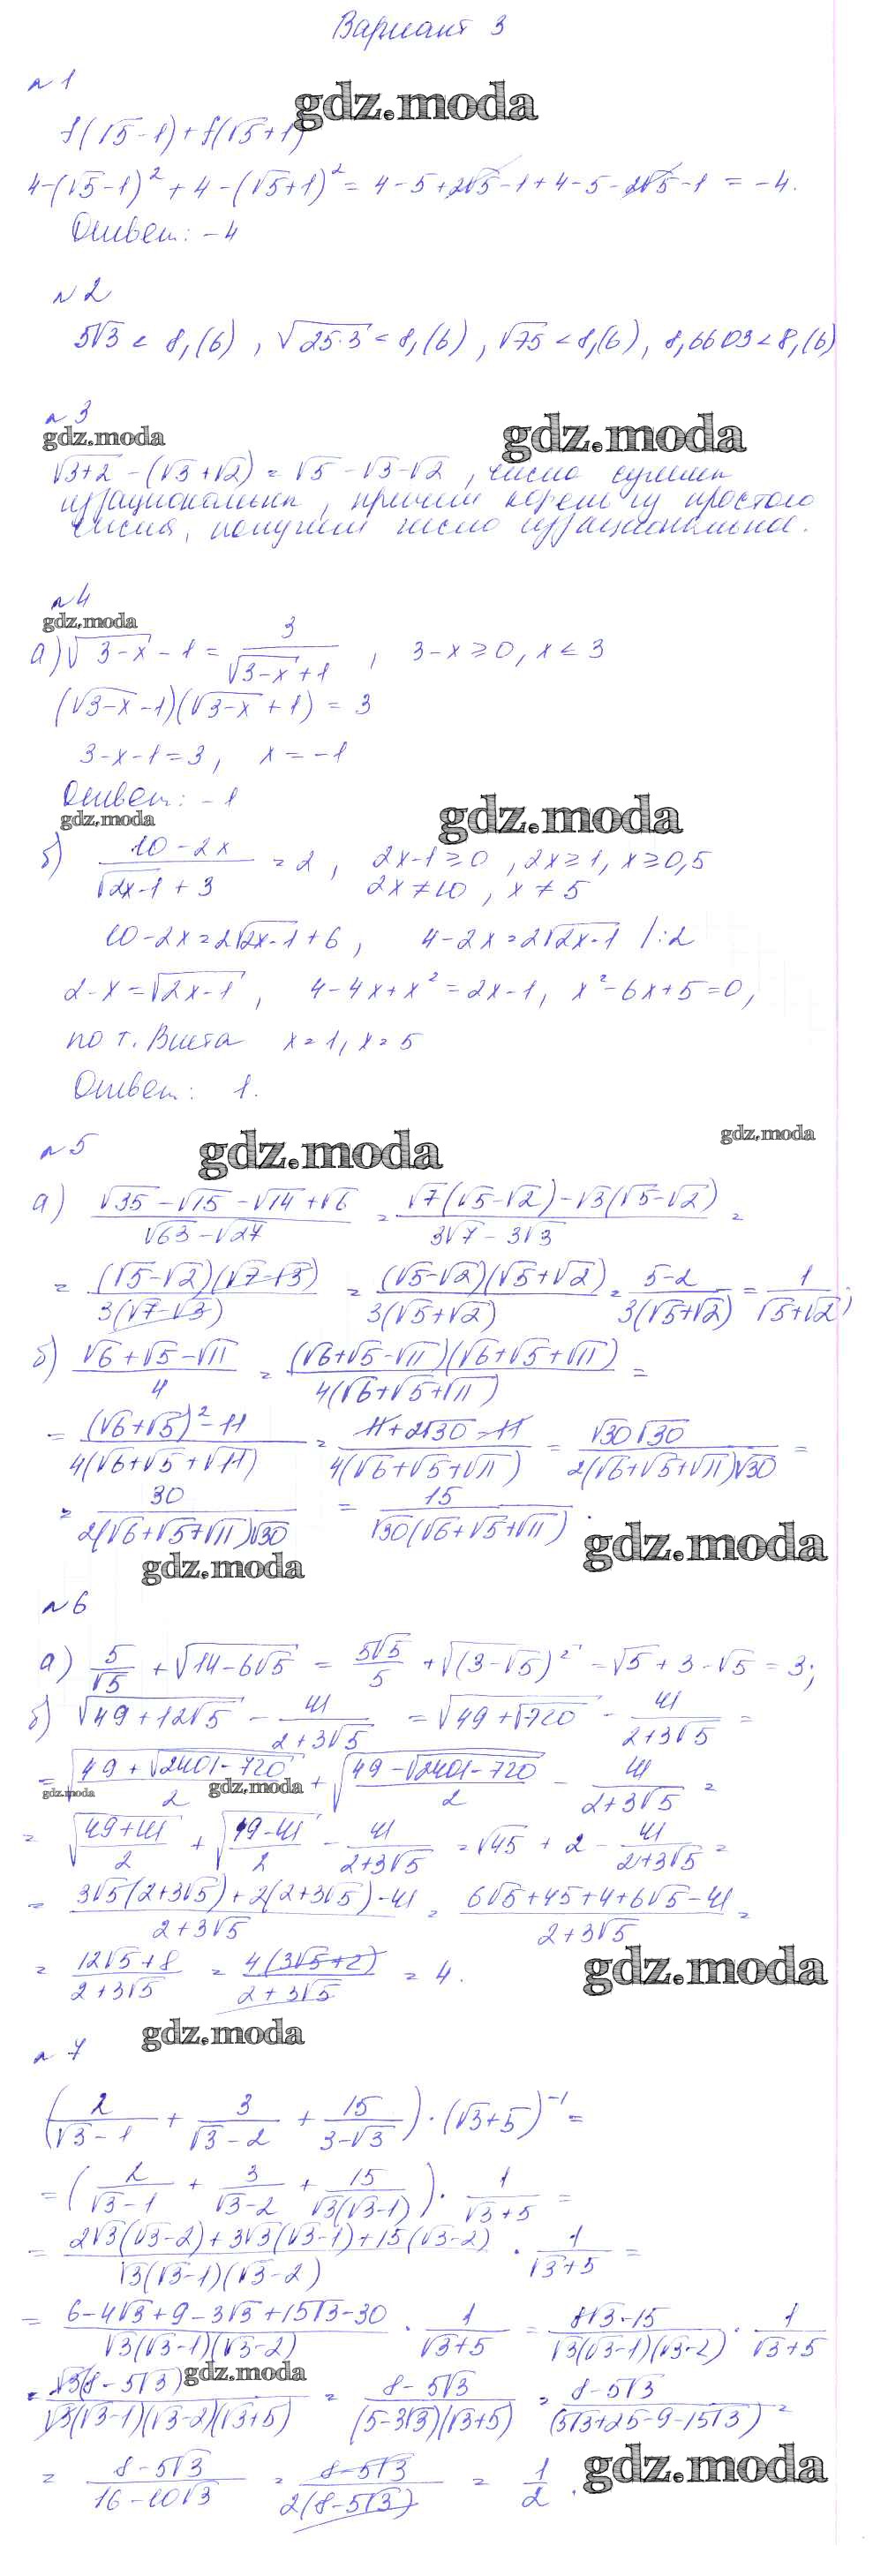 Вариант 3
№1
gdz.moda
f(√5-1)+f(√5+1)
4-(√5-1)²+4-(√5+1)²=4-5+2√5-1+4-5-2√5-1=-4.
Ответ: -4
№2
5√3<8,(6), √(25·3)<8,(6), √75<8,(6), 8,6603<8,(6)
№3
gdz.moda
gdz.moda
√(3+2)-(√3+√2)=√5-√3-√2, число
иррациональн, причем корень из простого
числа, получим число иррациональное.
№4
gdz.moda
а) √(3-x)-1=3/(√(3-x)+1), 3-x≥0, x≤3
(√(3-x)-1)(√(3-x)+1)=3
3-x-1=3, x=-1
Ответ: -1
gdz.moda
gdz.moda
б) (10-2x)/(√(2x-1)+3)=2, 2x-1≥0, 2x≥1, x≥0,5
2x≠10, x≠5
10-2x=2√(2x-1)+6, 4-2x=2√(2x-1) /:2
2-x=√(2x-1), 4-4x+x²=2x-1, x²-6x+5=0,
по т. Виета x=1, x=5
Ответ: 1.
№5
gdz.moda
gdz.moda
а) (√35-√15-√14+√6)/(√63-√27)=(√7(√5-√2)-√3(√5-√2))/(3√7-3√3)=
=((√5-√2)(√7-√3))/(3(√7-√3))=((√5-√2)(√5+√2))/(3(√5+√2))=(5-2)/(3(√5+√2))=1/(√5+√2);
б) (√6+√5-√11)/4=((√6+√5-√11)(√6+√5+√11))/(4(√6+√5+√11))=
=((√6+√5)²-11)/(4(√6+√5+√11))=(11+2√30-11)/(4(√6+√5+√11))=(√30√30)/(2(√6+√5+√11)√30)=
=30/(2(√6+√5+√11)√30)=15/(√30(√6+√5+√11)).
gdz.moda
gdz.moda
№6
а) 5/√5+√(14-6√5)=5√5/5+√((3-√5)²)=√5+3-√5=3;
б) √(49+12√5)-41/(2+3√5)=√(49+√720)-41/(2+3√5)=
=√((49+√(2401-720))/2)+√((49-√(2401-720))/2)-41/(2+3√5)=
gdz.moda
gdz.moda
=√((49+41)/2)+√((49-41)/2)-41/(2+3√5)=√45+2-41/(2+3√5)=
=(3√5(2+3√5)+2(2+3√5)-41)/(2+3√5)=(6√5+45+4+6√5-41)/(2+3√5)=
=(12√5+8)/(2+3√5)=(4(3√5+2))/(2+3√5)=4.
gdz.moda
gdz.moda
№7
(2/(√3-1)+3/(√3-2)+15/(3-√3))·(√3+5)⁻¹=
=(2/(√3-1)+3/(√3-2)+15/(√3(√3-1)))·1/(√3+5)=
=(2√3(√3-2)+3√3(√3-1)+15(√3-2))/(√3(√3-1)(√3-2))·1/(√3+5)=
=(6-4√3+9-3√3+15√3-30)/(√3(√3-1)(√3-2))·1/(√3+5)=(8√3-15)/(√3(√3-1)(√3-2))·1/(√3+5)
gdz.moda
=(√3(8-5√3))/(√3(√3-1)(√3-2)(√3+5))=(8-5√3)/((5-3√3)(√3+5))=(8-5√3)/(5√3+25-9-15√3)=
=(8-5√3)/(16-10√3)=(8-5√3)/(2(8-5√3))=1/2.
gdz.moda